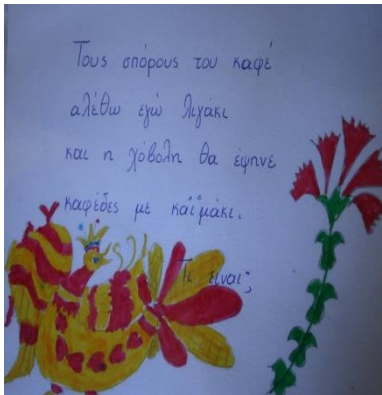 Τους σπόρους του καφέ
αλέθω εγώ λιγάκι
και η χόβολη θα έψηνε
καφέδες με καϊμάκι.
Τι είναι;